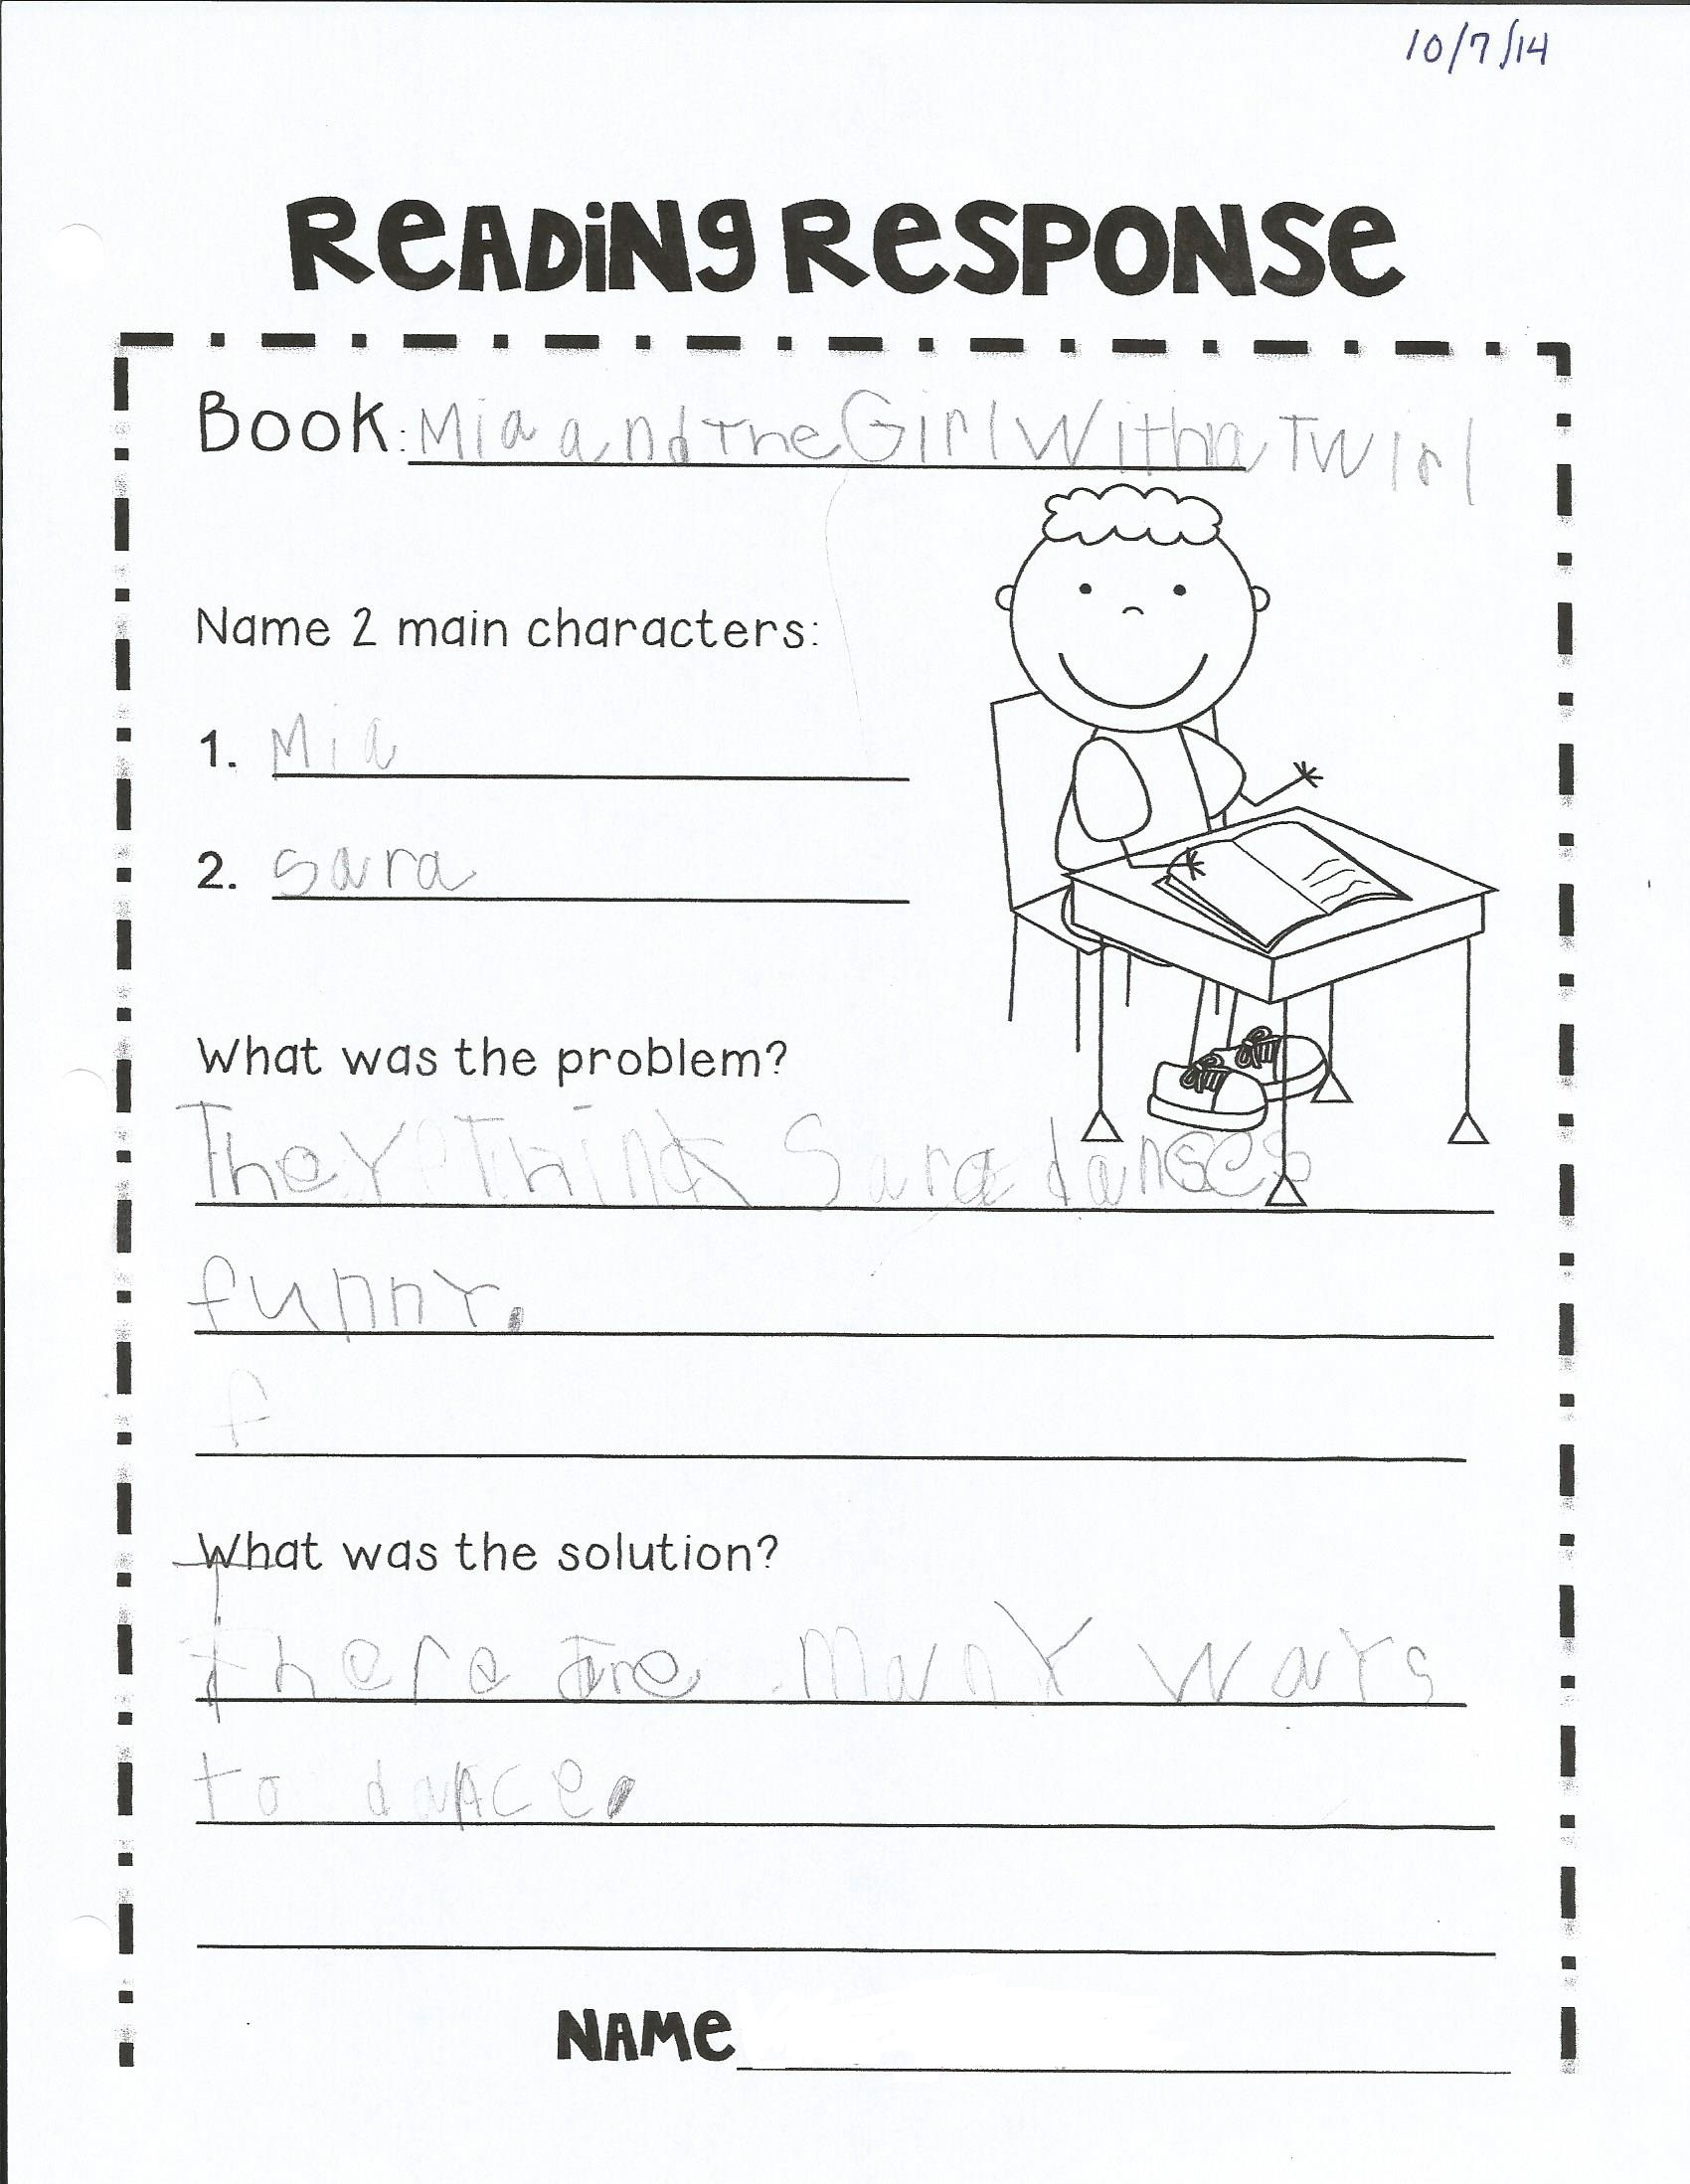 10/7/14
ReADiNg ResPONse
Book: Mia and The Girl With a Twirl
Name 2 main characters:
1. Mia
2. Sara
What was the problem?
They Think Sara danses
funny.
f
What was the solution?
There are Many ways
to dance.
NAMe